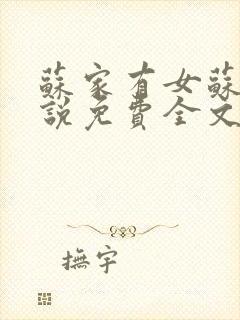 蘇家有女蘇
說免費全文
撫宇